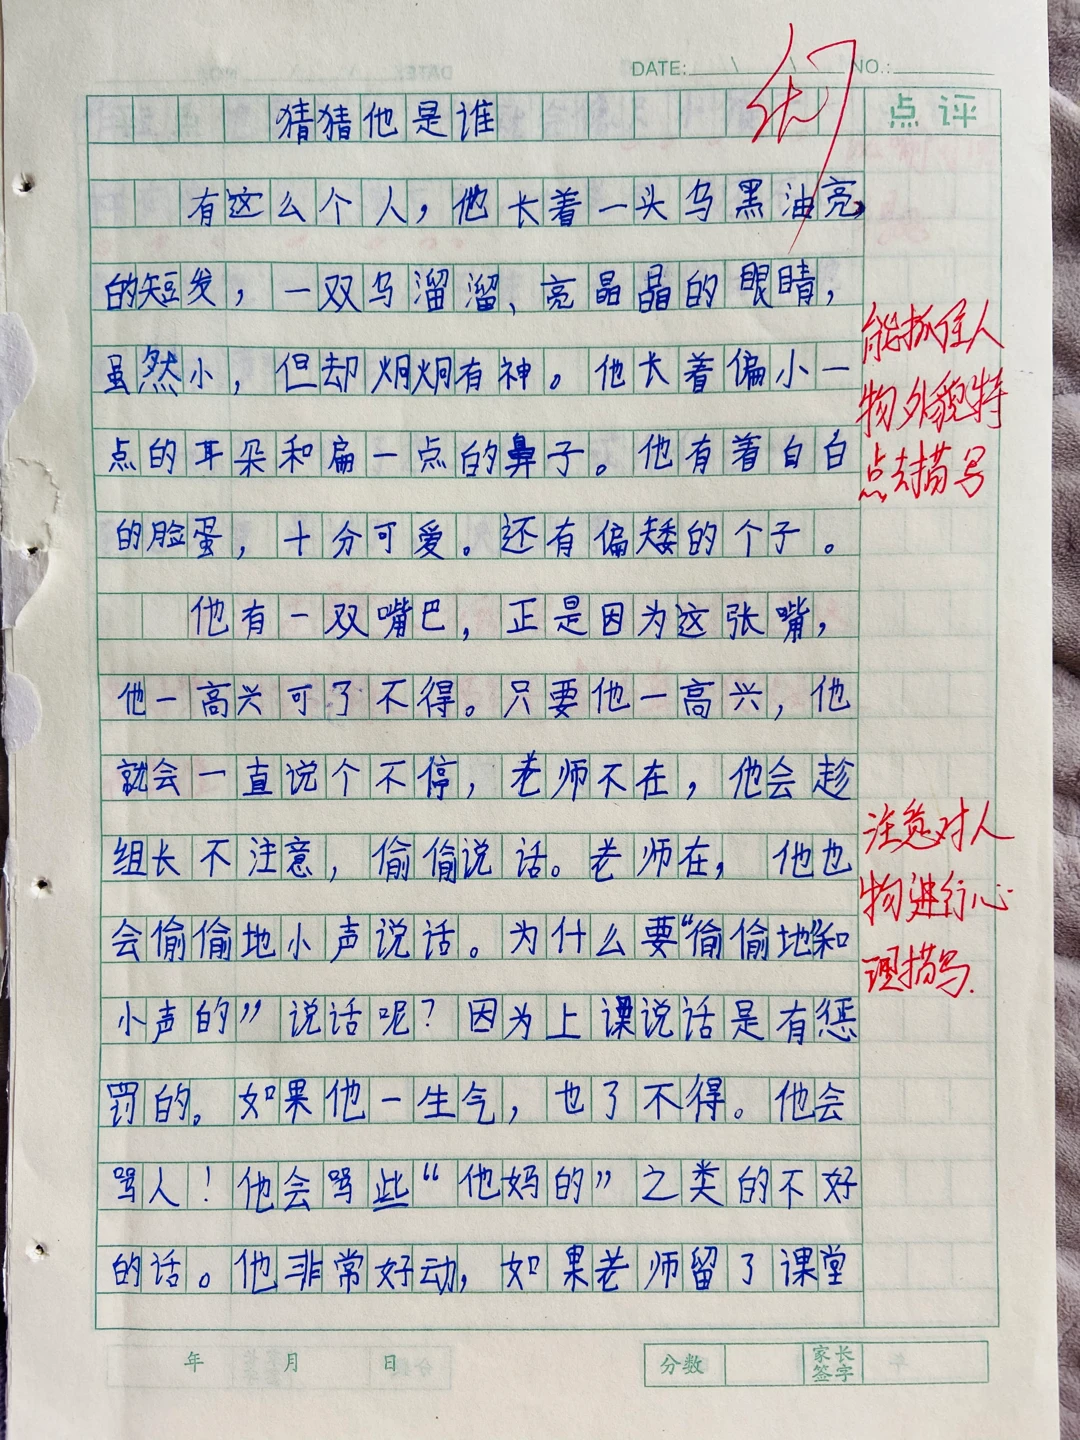 DATE: / / NO.:
优
点评
猜猜他是谁
有这么个人，他长着一头乌黑油亮
的短发，一双乌溜溜、亮晶晶的眼睛，
虽然小，但却炯炯有神。他长着偏小一
点的耳朵和扁一点的鼻子。他有着白白
的脸蛋，十分可爱。还有偏矮的个子。
他有一双嘴巴，正是因为这张嘴，
他一高兴可了不得。只要他一高兴，他
就会一直说个不停，老师不在，他会趁
组长不注意，偷偷说话。老师在，他也
会偷偷地小声说话。为什么要“偷偷地”和
小声的”说话呢？因为上课说话是有惩
罚的。如果他一生气，也了不得。他会
骂人！他会骂些“他妈的”之类的不好
的话。他非常好动，如果老师留了课堂
能抓住人
物外貌特
点去描写
注意对人
物进行心
理描写.
年 月 日
分数
家长签字